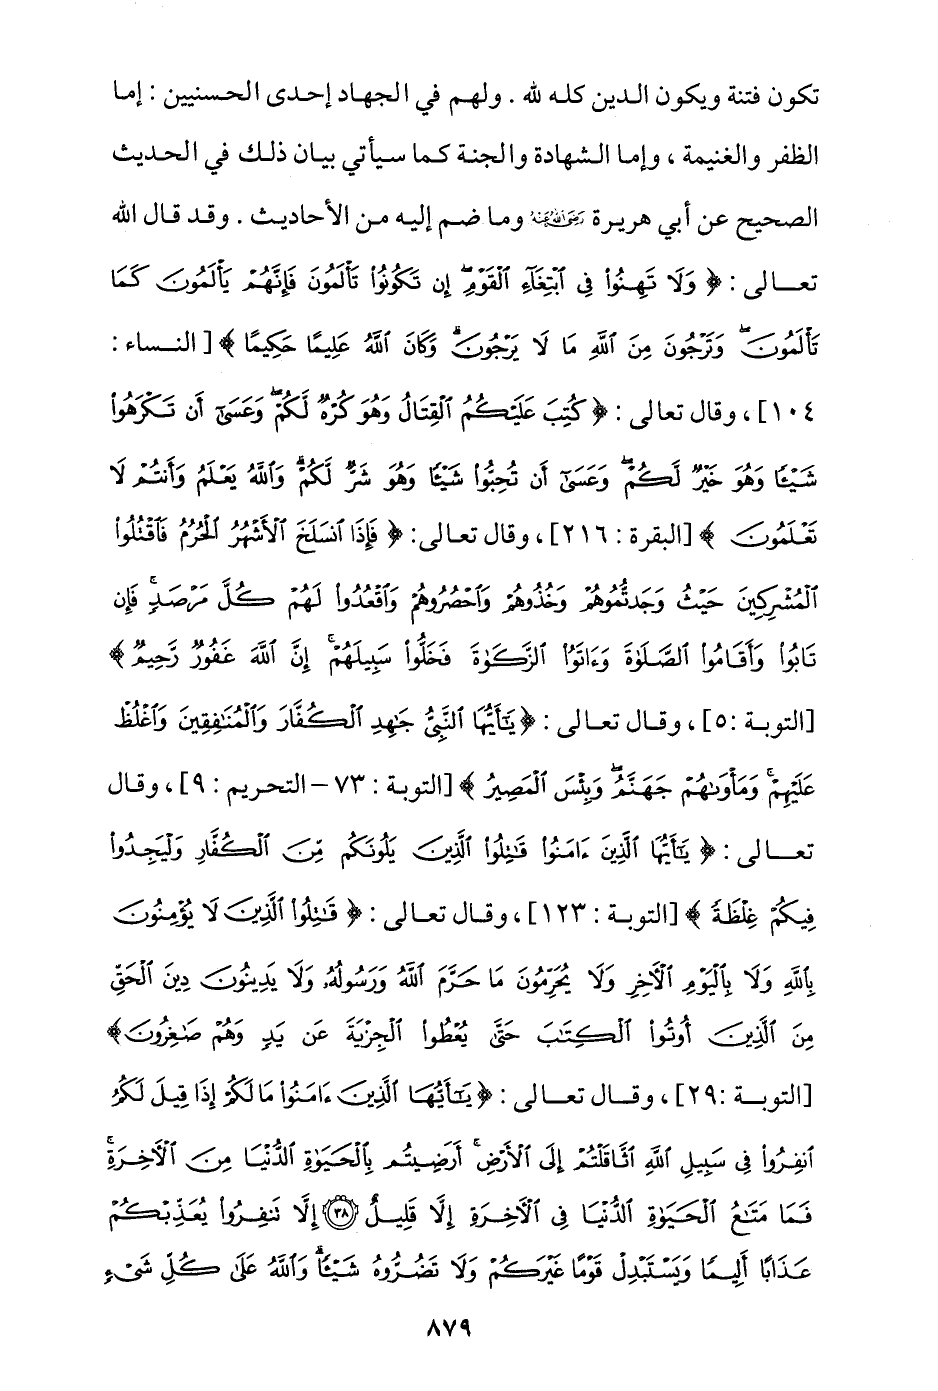 تكون فتنة ويكون الدين كله لله . ولهم في الجهاد إحدى الحسنيين : إما
الظفر والغنيمة ، وإما الشهادة والجنة كما سيأتي بيان ذلك في الحديث
الصحيح عن أبي هريرة رضي الله عنه وما ضم إليه من الأحاديث . وقد قال الله
تعالى : ﴿ وَلَا تَهِنُوا۟ فِى ٱبْتِغَآءِ ٱلْقَوْمِ ۖ إِن تَكُونُوا۟ تَأْلَمُونَ فَإِنَّهُمْ يَأْلَمُونَ كَمَا
تَأْلَمُونَ ۖ وَتَرْجُونَ مِنَ ٱللَّهِ مَا لَا يَرْجُونَ ۗ وَكَانَ ٱللَّهُ عَلِيمًا حَكِيمًا ﴾ [ النساء :
١٠٤] ، وقال تعالى : ﴿ كُتِبَ عَلَيْكُمُ ٱلْقِتَالُ وَهُوَ كُرْهٌ لَّكُمْ ۖ وَعَسَىٰٓ أَن تَكْرَهُوا۟
شَيْـًٔا وَهُوَ خَيْرٌ لَّكُمْ ۖ وَعَسَىٰٓ أَن تُحِبُّوا۟ شَيْـًٔا وَهُوَ شَرٌّ لَّكُمْ ۗ وَٱللَّهُ يَعْلَمُ وَأَنتُمْ لَا
تَعْلَمُونَ ﴾ [البقرة : ٢١٦] ، وقال تعالى: ﴿ فَإِذَا ٱنسَلَخَ ٱلْأَشْهُرُ ٱلْحُرُمُ فَٱقْتُلُوا۟
ٱلْمُشْرِكِينَ حَيْثُ وَجَدتُّمُوهُمْ وَخُذُوهُمْ وَٱحْصُرُوهُمْ وَٱقْعُدُوا۟ لَهُمْ كُلَّ مَرْصَدٍ ۚ فَإِن
تَابُوا۟ وَأَقَامُوا۟ ٱلصَّلَوٰةَ وَءَاتَوُا۟ ٱلزَّكَوٰةَ فَخَلُّوا۟ سَبِيلَهُمْ ۚ إِنَّ ٱللَّهَ غَفُورٌ رَّحِيمٌ ﴾
[التوبة :٥] ، وقال تعالى : ﴿ يَـٰٓأَيُّهَا ٱلنَّبِىُّ جَـٰهِدِ ٱلْكُفَّارَ وَٱلْمُنَـٰفِقِينَ وَٱغْلُظْ
عَلَيْهِمْ ۚ وَمَأْوَىٰهُمْ جَهَنَّمُ ۖ وَبِئْسَ ٱلْمَصِيرُ ﴾ [التوبة : ٧٣ – التحريم : ٩] ، وقال
تعالى : ﴿ يَـٰٓأَيُّهَا ٱلَّذِينَ ءَامَنُوا۟ قَـٰتِلُوا۟ ٱلَّذِينَ يَلُونَكُم مِّنَ ٱلْكُفَّارِ وَلْيَجِدُوا۟
فِيكُمْ غِلْظَةً ﴾ [التوبة : ١٢٣] ، وقال تعالى : ﴿ قَـٰتِلُوا۟ ٱلَّذِينَ لَا يُؤْمِنُونَ
بِٱللَّهِ وَلَا بِٱلْيَوْمِ ٱلْـَٔاخِرِ وَلَا يُحَرِّمُونَ مَا حَرَّمَ ٱللَّهُ وَرَسُولُهُۥ وَلَا يَدِينُونَ دِينَ ٱلْحَقِّ
مِنَ ٱلَّذِينَ أُوتُوا۟ ٱلْكِتَـٰبَ حَتَّىٰ يُعْطُوا۟ ٱلْجِزْيَةَ عَن يَدٍ وَهُمْ صَـٰغِرُونَ﴾
[التوبة :٢٩] ، وقال تعالى : ﴿ يَـٰٓأَيُّهَا ٱلَّذِينَ ءَامَنُوا۟ مَا لَكُمْ إِذَا قِيلَ لَكُمُ
ٱنفِرُوا۟ فِى سَبِيلِ ٱللَّهِ ٱثَّاقَلْتُمْ إِلَى ٱلْأَرْضِ ۚ أَرَضِيتُم بِٱلْحَيَوٰةِ ٱلدُّنْيَا مِنَ ٱلْـَٔاخِرَةِ ۚ
فَمَا مَتَـٰعُ ٱلْحَيَوٰةِ ٱلدُّنْيَا فِى ٱلْـَٔاخِرَةِ إِلَّا قَلِيلٌ ﴿٣٨﴾ إِلَّا تَنفِرُوا۟ يُعَذِّبْكُمْ
عَذَابًا أَلِيمًا وَيَسْتَبْدِلْ قَوْمًا غَيْرَكُمْ وَلَا تَضُرُّوهُ شَيْـًٔا ۗ وَٱللَّهُ عَلَىٰ كُلِّ شَىْءٍ
٨٧٩